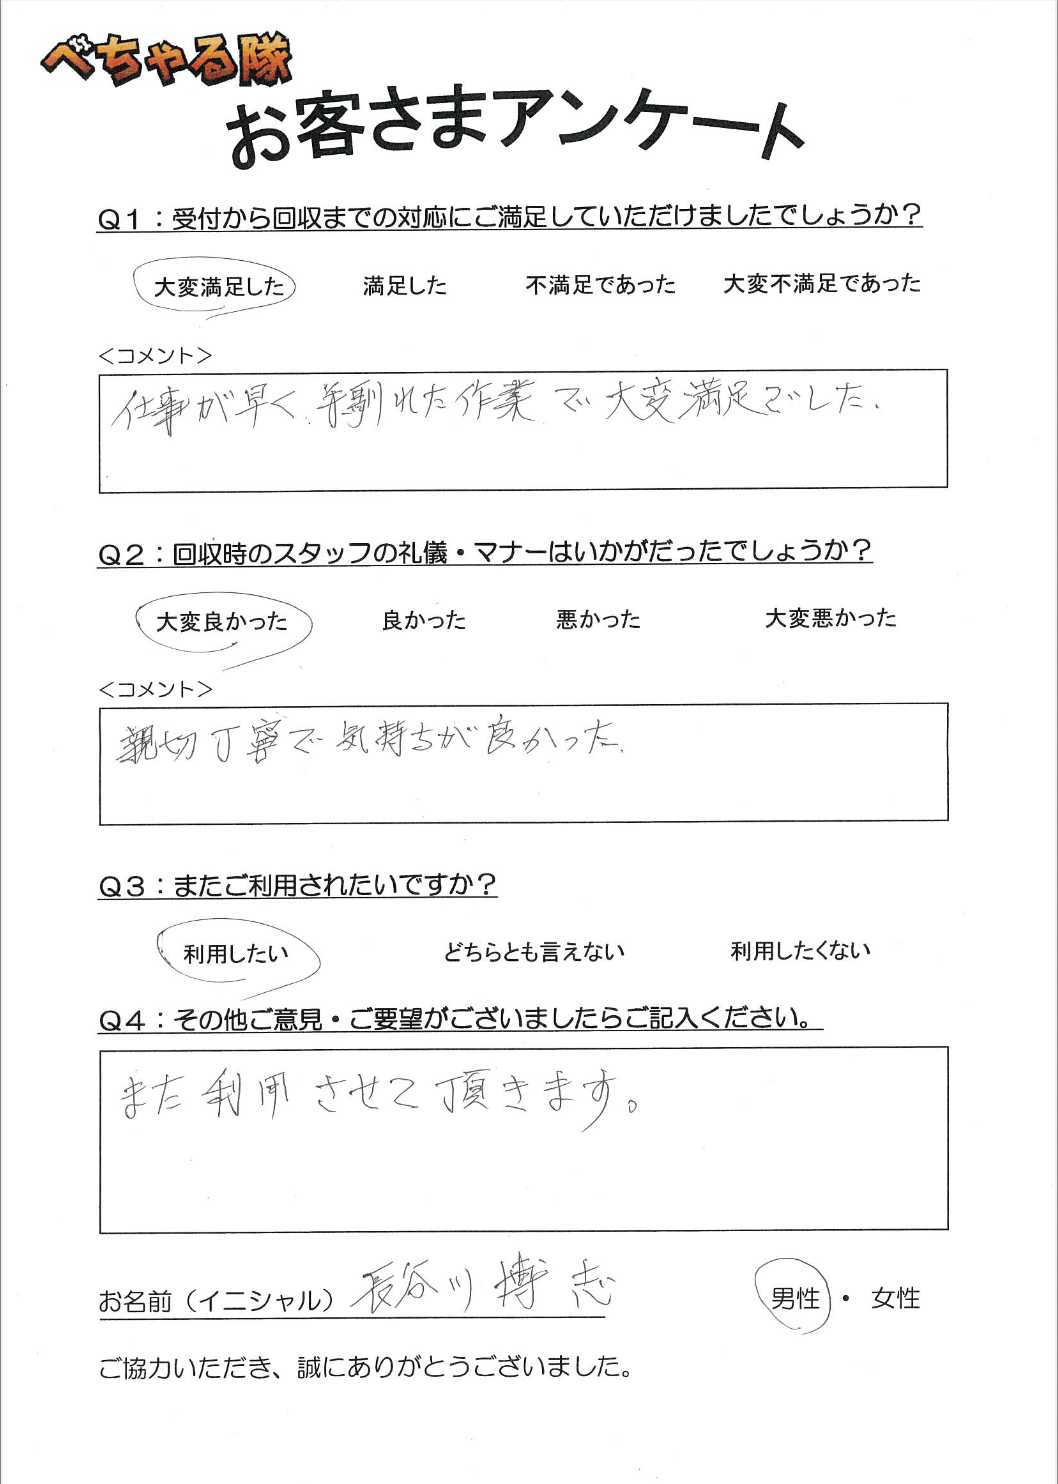 べちゃる隊
お客さまアンケート
Q1：受付から回収までの対応にご満足していただけましたでしょうか？
大変満足した 満足した 不満足であった 大変不満足であった
＜コメント＞
仕事が早く、手馴れた作業で大変満足でした。
Q2：回収時のスタッフの礼儀・マナーはいかがだったでしょうか？
大変良かった 良かった 悪かった 大変悪かった
＜コメント＞
親切丁寧で気持ちが良かった。
Q3：またご利用されたいですか？
利用したい どちらとも言えない 利用したくない
Q4：その他ご意見・ご要望がございましたらご記入ください。
また利用させて頂きます。
お名前（イニシャル） 長谷川 博志 男性 ・ 女性
ご協力いただき、誠にありがとうございました。